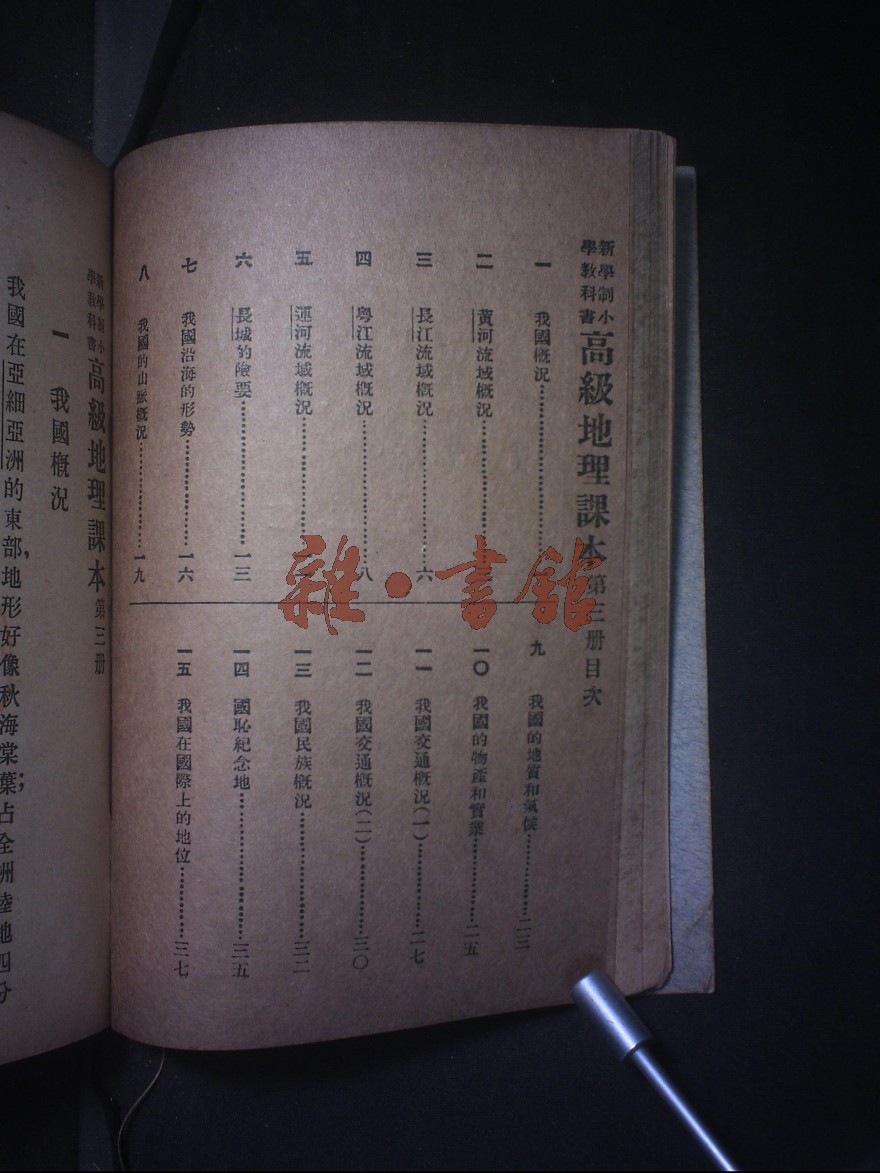 新學制小
學教科書
高級地理課本第三册目次
一 我國概況
二 黃河流域概況
三 長江流域概況……六
四 粵江流域概況……八
五 運河流域概況
六 長城的險要……一三
七 我國沿海的形勢……一六
八 我國的山脈概況……一九
九 我國的地質和氣候……二三
一〇 我國的物產和實業……二五
一一 我國交通概況(一)……二七
一二 我國交通概況(二)……三〇
一三 我國民族概況……三二
一四 國恥紀念地……三五
一五 我國在國際上的地位……三七
新學制小
學教科書
高級地理課本第三册
一 我國概況
我國在亞細亞洲的東部,地形好像秋海棠葉;占全洲陸地四分
雜·書館